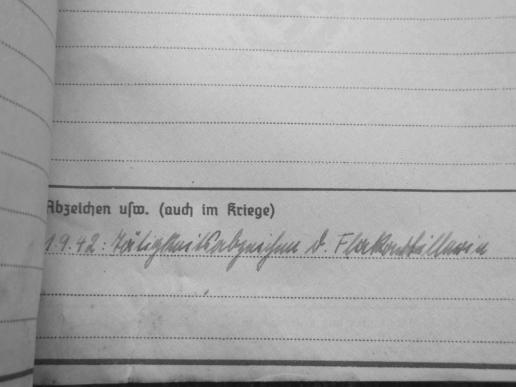 Abzeichen usw. (auch im Kriege)
1.9.42: Tätigkeitsabzeichen d. Flakartillerie